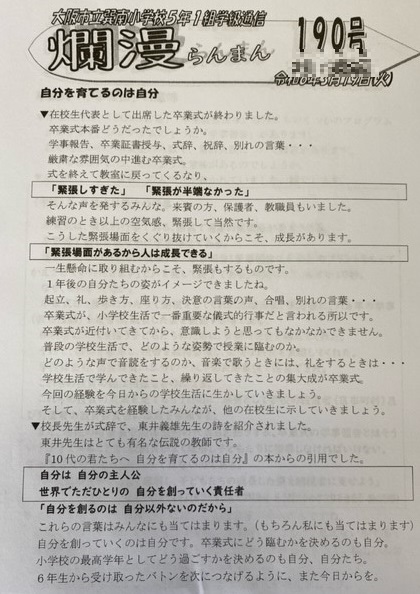 大阪市立巽南小学校5年1組学級通信
爛漫 らんまん
190号
令和6年3月19日(火)
自分を育てるのは自分
▼在校生代表として出席した卒業式が終わりました。
卒業式本番どうだったでしょうか。
学事報告、卒業証書授与、式辞、祝辞、別れの言葉・・・
厳粛な雰囲気の中進む卒業式。
式を終えて教室に戻ってくるなり、
「緊張しすぎた」 「緊張が半端なかった」
そんな声を発するみんな。来賓の方、保護者、教職員もいました。
練習のとき以上の空気感、緊張して当然です。
こうした緊張場面をくぐり抜けていくからこそ、成長があります。
「緊張場面があるから人は成長できる」
一生懸命に取り組むからこそ、緊張もするものです。
1年後の自分たちの姿がイメージできましたね。
起立、礼、歩き方、座り方、決意の言葉の声、合唱、別れの言葉・・・
卒業式が、小学校生活で一番重要な儀式的行事だと言われる所以です。
卒業式が近付いてきてから、意識しようと思ってもなかなかできません。
普段の学校生活で、どのような姿勢で授業に臨むのか。
どのような声で音読をするのか、音楽で歌うときには、礼をするときは・・・
学校生活で学んできたこと、繰り返してきたことの集大成が卒業式。
今回の経験を今日からの学校生活に生かしていきましょう。
そして、卒業式を経験したみんなが、他の在校生に示していきましょう。
▼校長先生が式辞で、東井義雄先生の詩を紹介されました。
東井先生はとても有名な伝説の教師です。
『10代の君たちへ 自分を育てるのは自分』の本からの引用でした。
自分は 自分の主人公
世界でただひとりの 自分を創っていく責任者
「自分を創るのは 自分以外ないのだから」
これらの言葉はみんなにも当てはまります。(もちろん私にも当てはまります)
自分を創っていくのは自分です。卒業式にどう臨むかを決めるのも自分。
小学校の最高学年としてどう過ごすかを決めるのも自分、自分たち。
6年生から受け取ったバトンを次につなげるように、また今日からを。